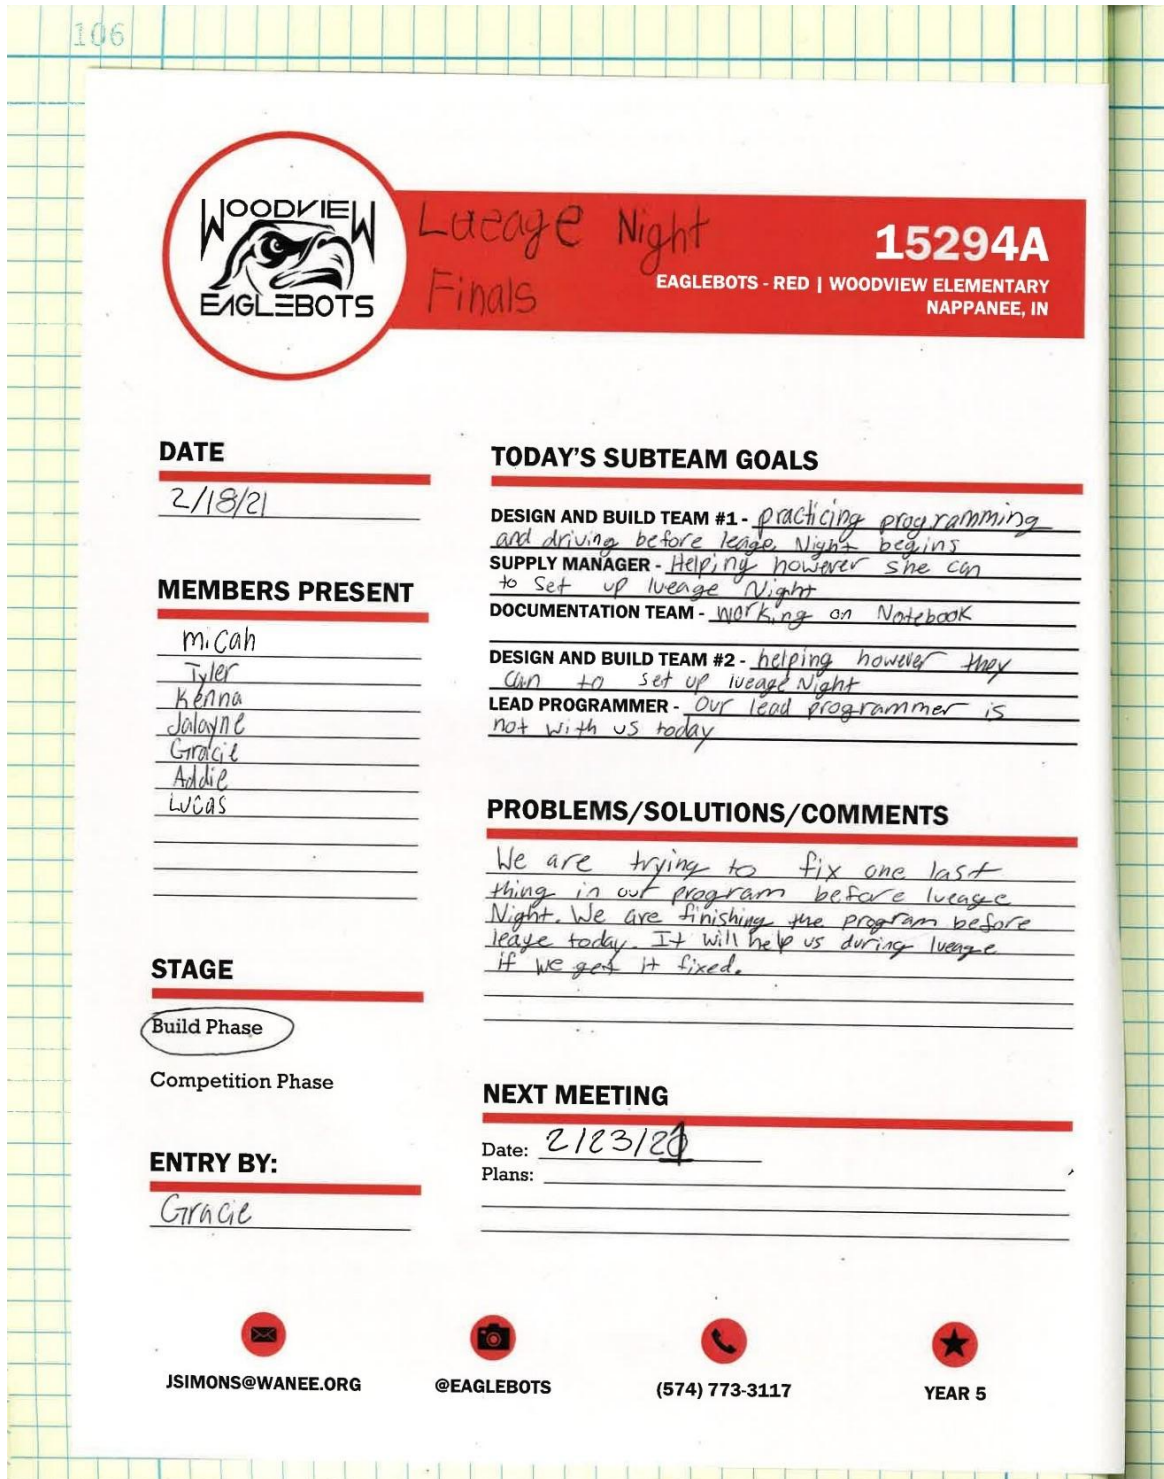 106
WOODVIEW
EAGLEBOTS
Lueage Night
Finals
15294A
EAGLEBOTS - RED | WOODVIEW ELEMENTARY
NAPPANEE, IN
DATE
2/18/21
MEMBERS PRESENT
Micah
Tyler
Kenna
Jalayne
Gracie
Addie
Lucas
STAGE
Build Phase
Competition Phase
ENTRY BY:
Gracie
TODAY'S SUBTEAM GOALS
DESIGN AND BUILD TEAM #1 - practicing programming
and driving before leage Night begins
SUPPLY MANAGER - Helping however she can
to set up lueage Night
DOCUMENTATION TEAM - working on Notebook
DESIGN AND BUILD TEAM #2 - helping however they
can to set up lueage Night
LEAD PROGRAMMER - Our lead programmer is
not with us today
PROBLEMS/SOLUTIONS/COMMENTS
We are trying to fix one last
thing in out program before lueage
Night. We are finishing the program before
leage today. It will help us during lueage
if we get it fixed.
NEXT MEETING
Date: 2/23/21
Plans:
JSIMONS@WANEE.ORG
@EAGLEBOTS
(574) 773-3117
YEAR 5